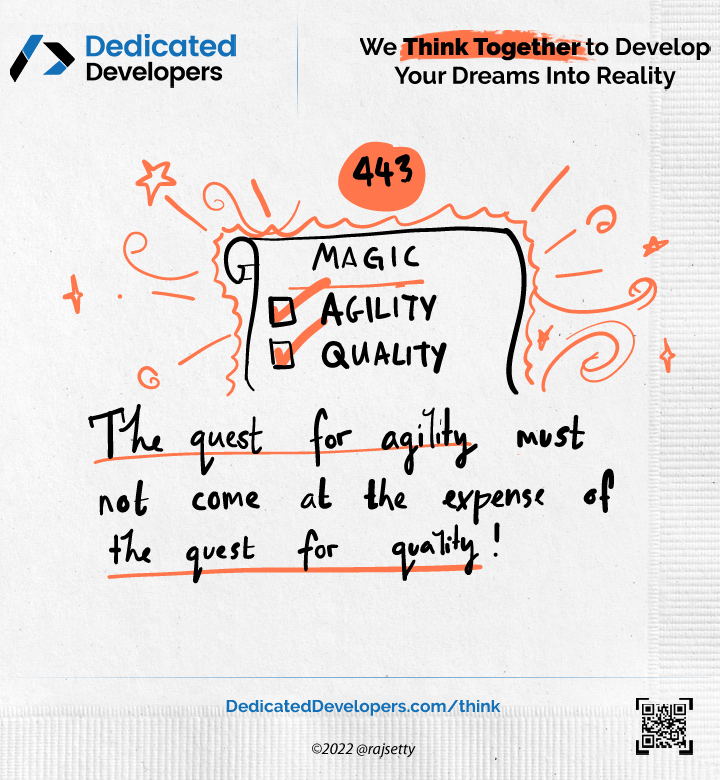 Dedicated
Developers
We Think Together to Develop
Your Dreams Into Reality
443
MAGIC
AGILITY
QUALITY
The quest for agility must
not come at the expense of
the quest for quality!
DedicatedDevelopers.com/think
©2022 @rajsetty